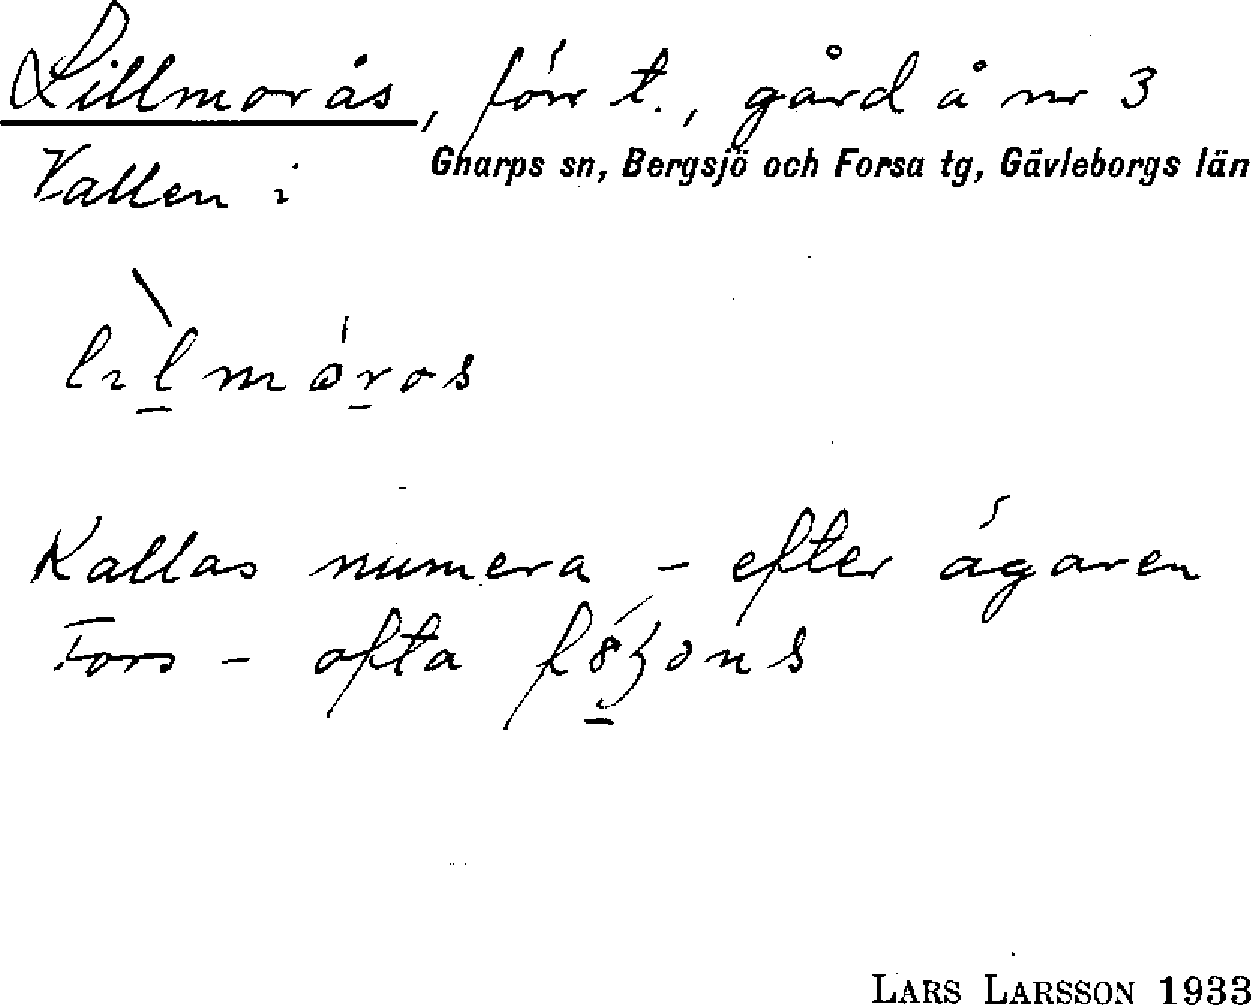 Lillmorås, förr t., gård å nr 3
Vallen i Gnarps sn, Bergsjö och Forsa tg, Gävleborgs län
Kallas numera - efter ägaren
Fors - ofta
LARS LARSSON 1933